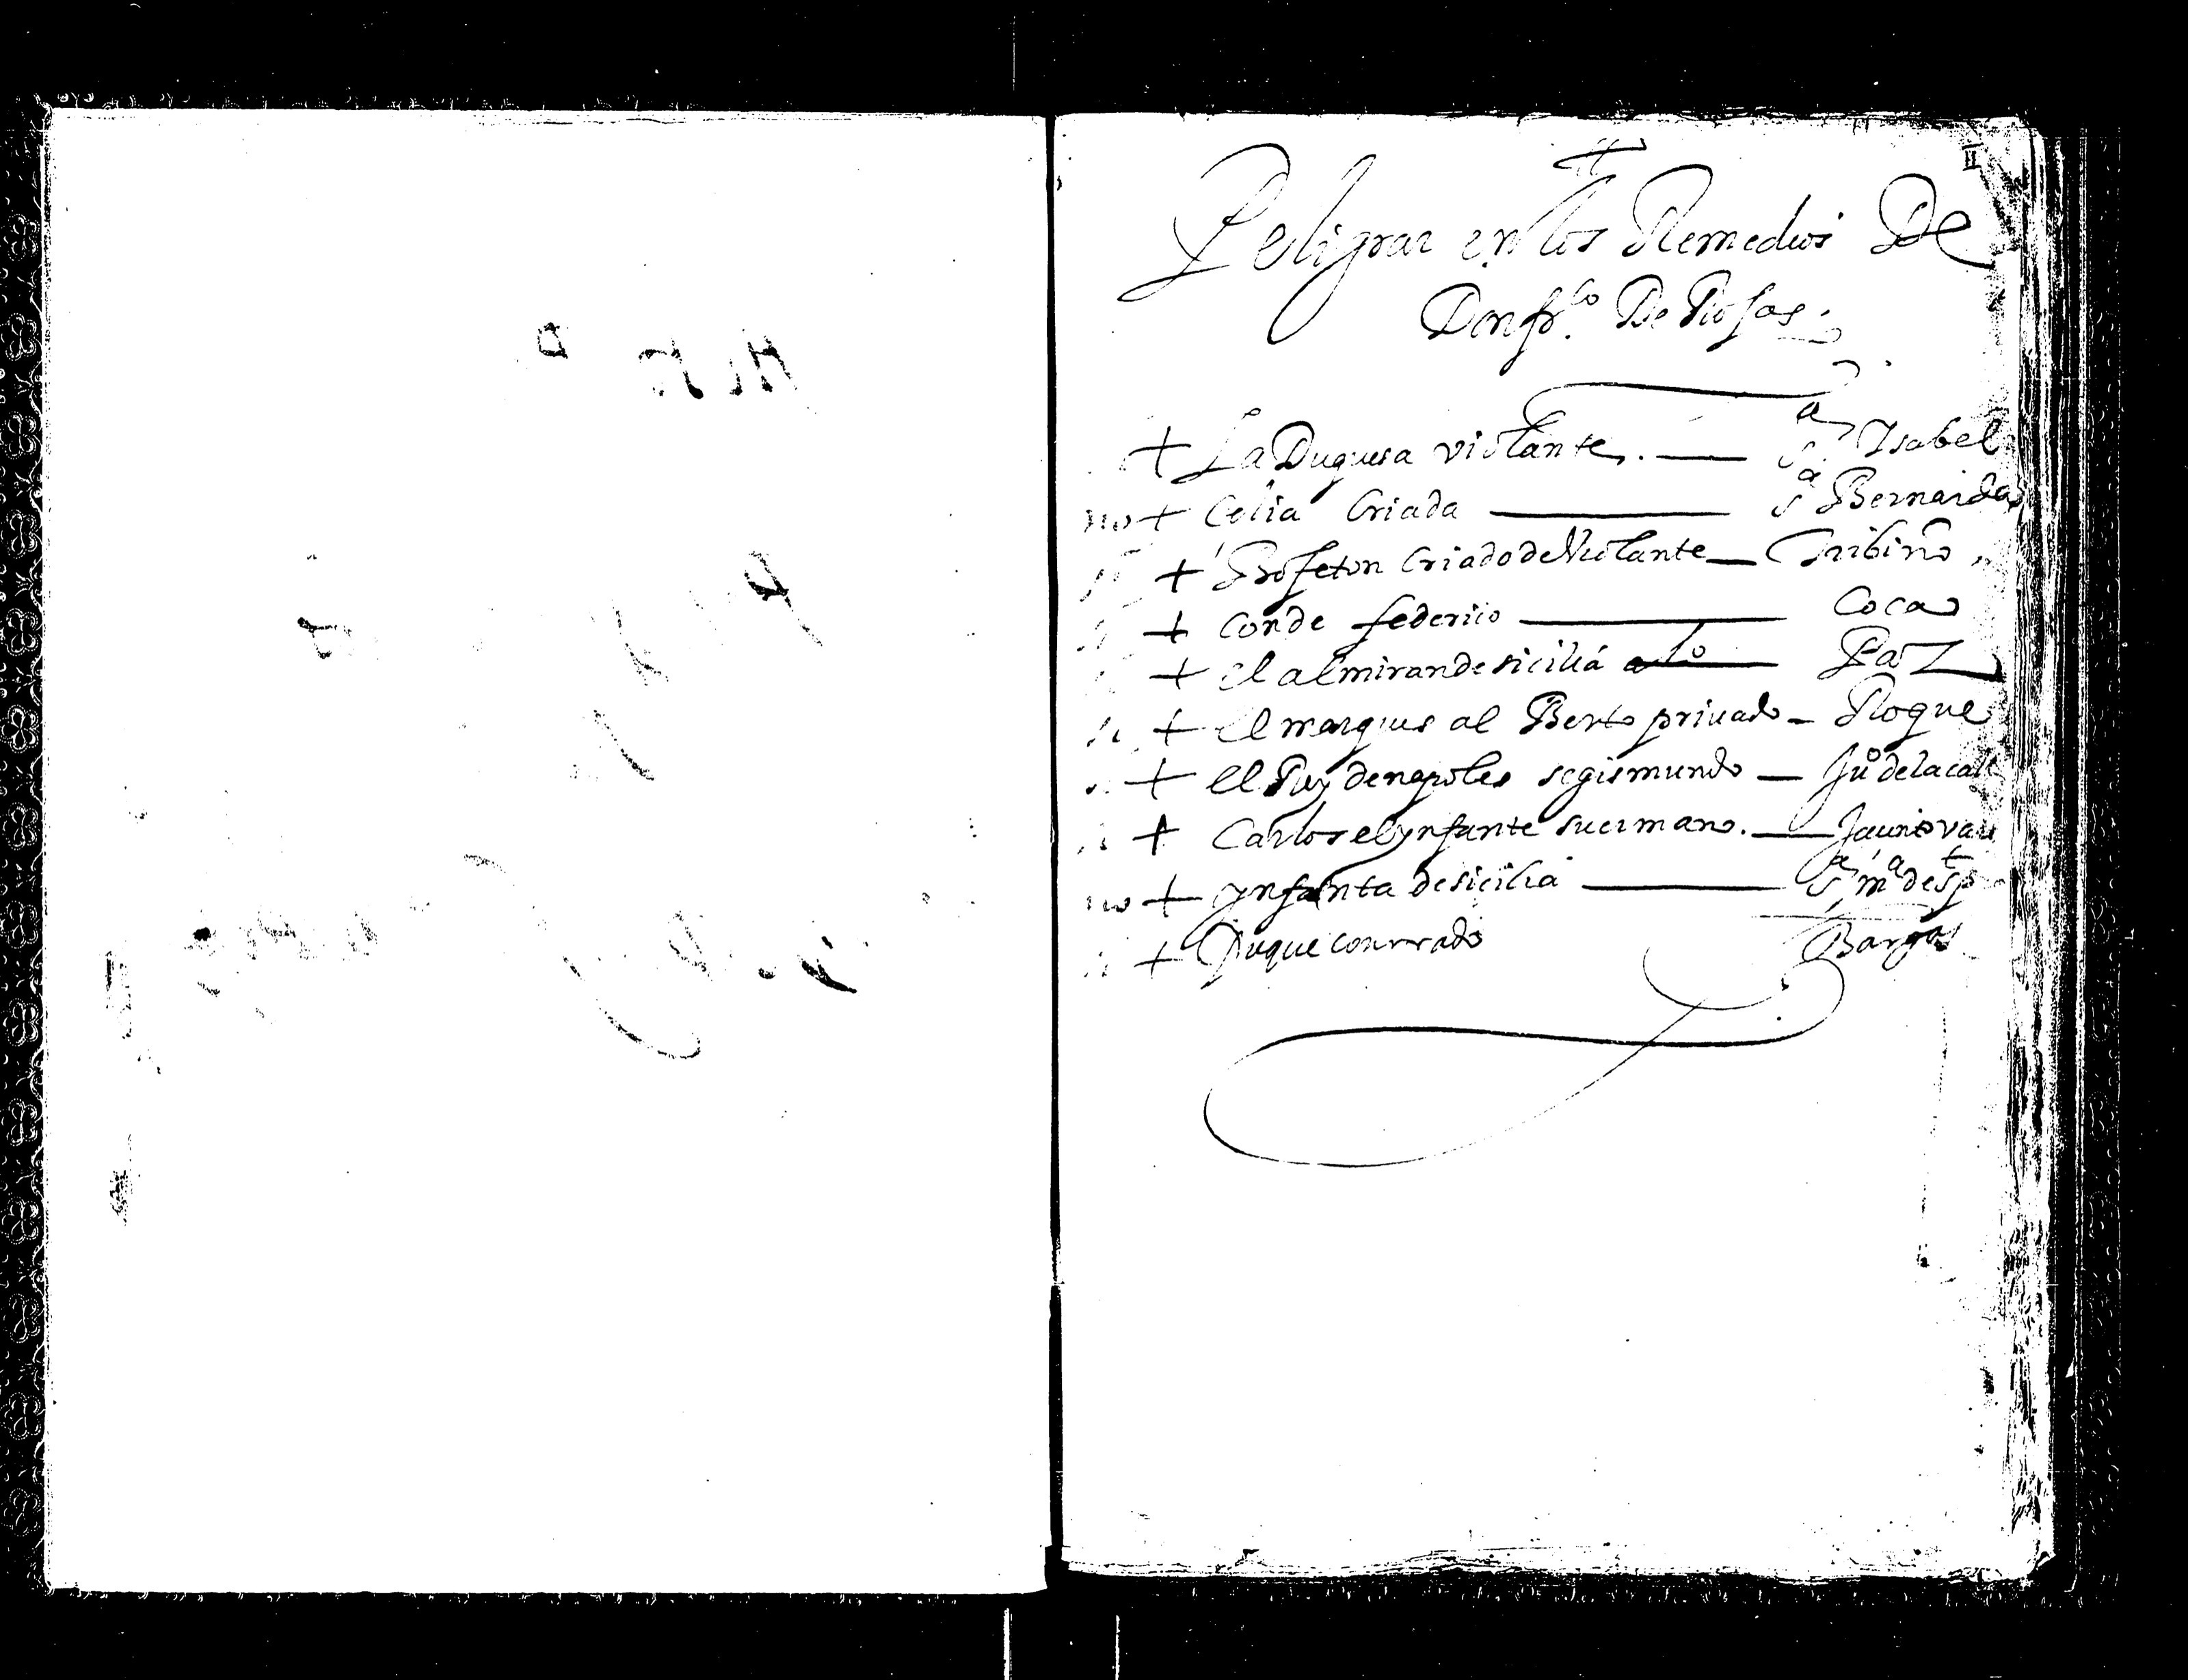 II
Peligrar en los Remedios De
Don fr.co De Rojas.
+ La Duquesa violante. — S.a Isabel
no + Celia Criada — S.a Bernarda
+ Bofeton Criado de Violante — Tribiño
+ Conde federico — Coca
+ el almirande sicilia — Paz
+ el marques al Berto privado — Roque
+ el Rey de napoles segismundo — Ju.o de la calle
+ Carlos el ynfante su ermano. — Jacinto
no + ynfanta de sicilia — S.a m.a de
+ Duque conrrado Bargas